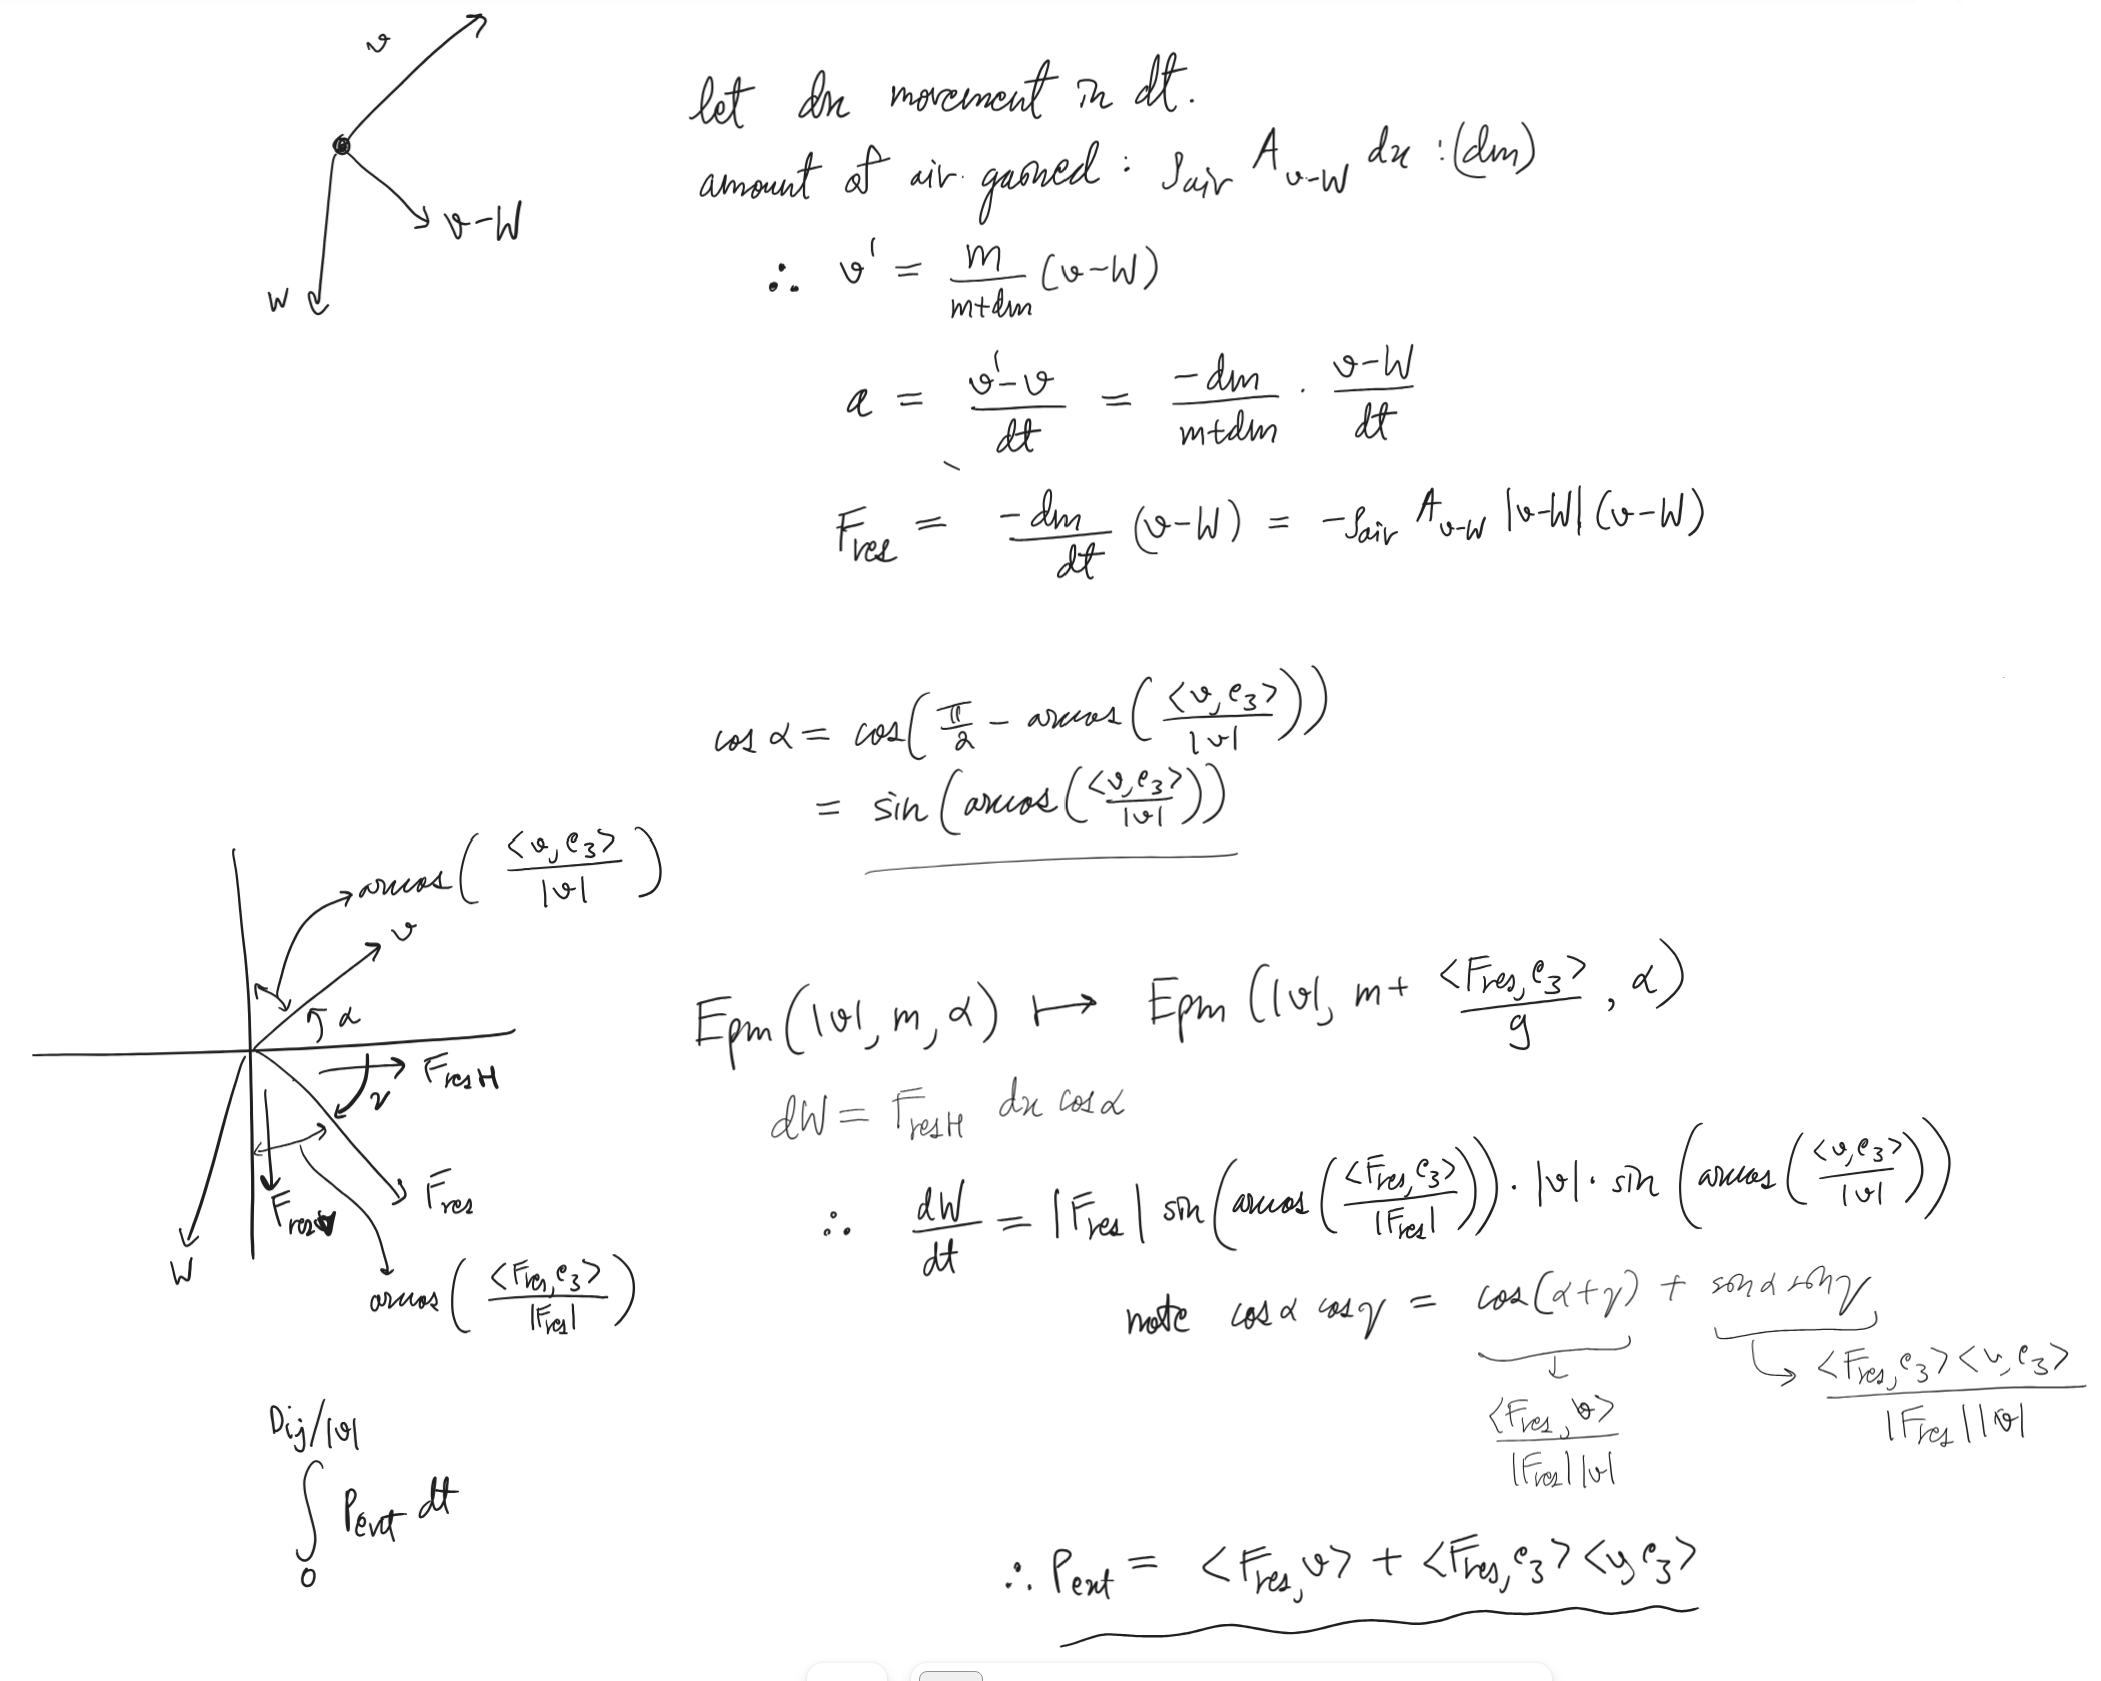 v
v-W
W
let dx movement in dt.
amount of air gained : ρair A_{v-W} dx : (dm)
∴ v' = m/(m+dm) (v-W)
a = (v'-v)/dt = -dm/(m+dm) · (v-W)/dt
F_res = -dm/dt (v-W) = -ρair A_{v-W} |v-W| (v-W)
cos α = cos(π/2 - arccos(<v,e_3>/|v|))
= sin(arccos(<v,e_3>/|v|))
arccos(<v,e_3>/|v|)
v
α
F_resH
γ
F_res
F_resV
W
arccos(<F_res,e_3>/|F_res|)
Epm(|v|, m, α) ↦ Epm(|v|, m + <F_res,e_3>/g, α)
dW = F_resH dx cos α
∴ dW/dt = |F_res| sin(arccos(<F_res,e_3>/|F_res|)) · |v| · sin(arccos(<v,e_3>/|v|))
note cos α cos γ = cos(α+γ) + sin α sin γ
<F_res,v>/|F_res||v|
<F_res,e_3><v,e_3>/|F_res||v|
∫_0^{D_ij/|v|} P_ext dt
∴ P_ext = <F_res,v> + <F_res,e_3><v,e_3>